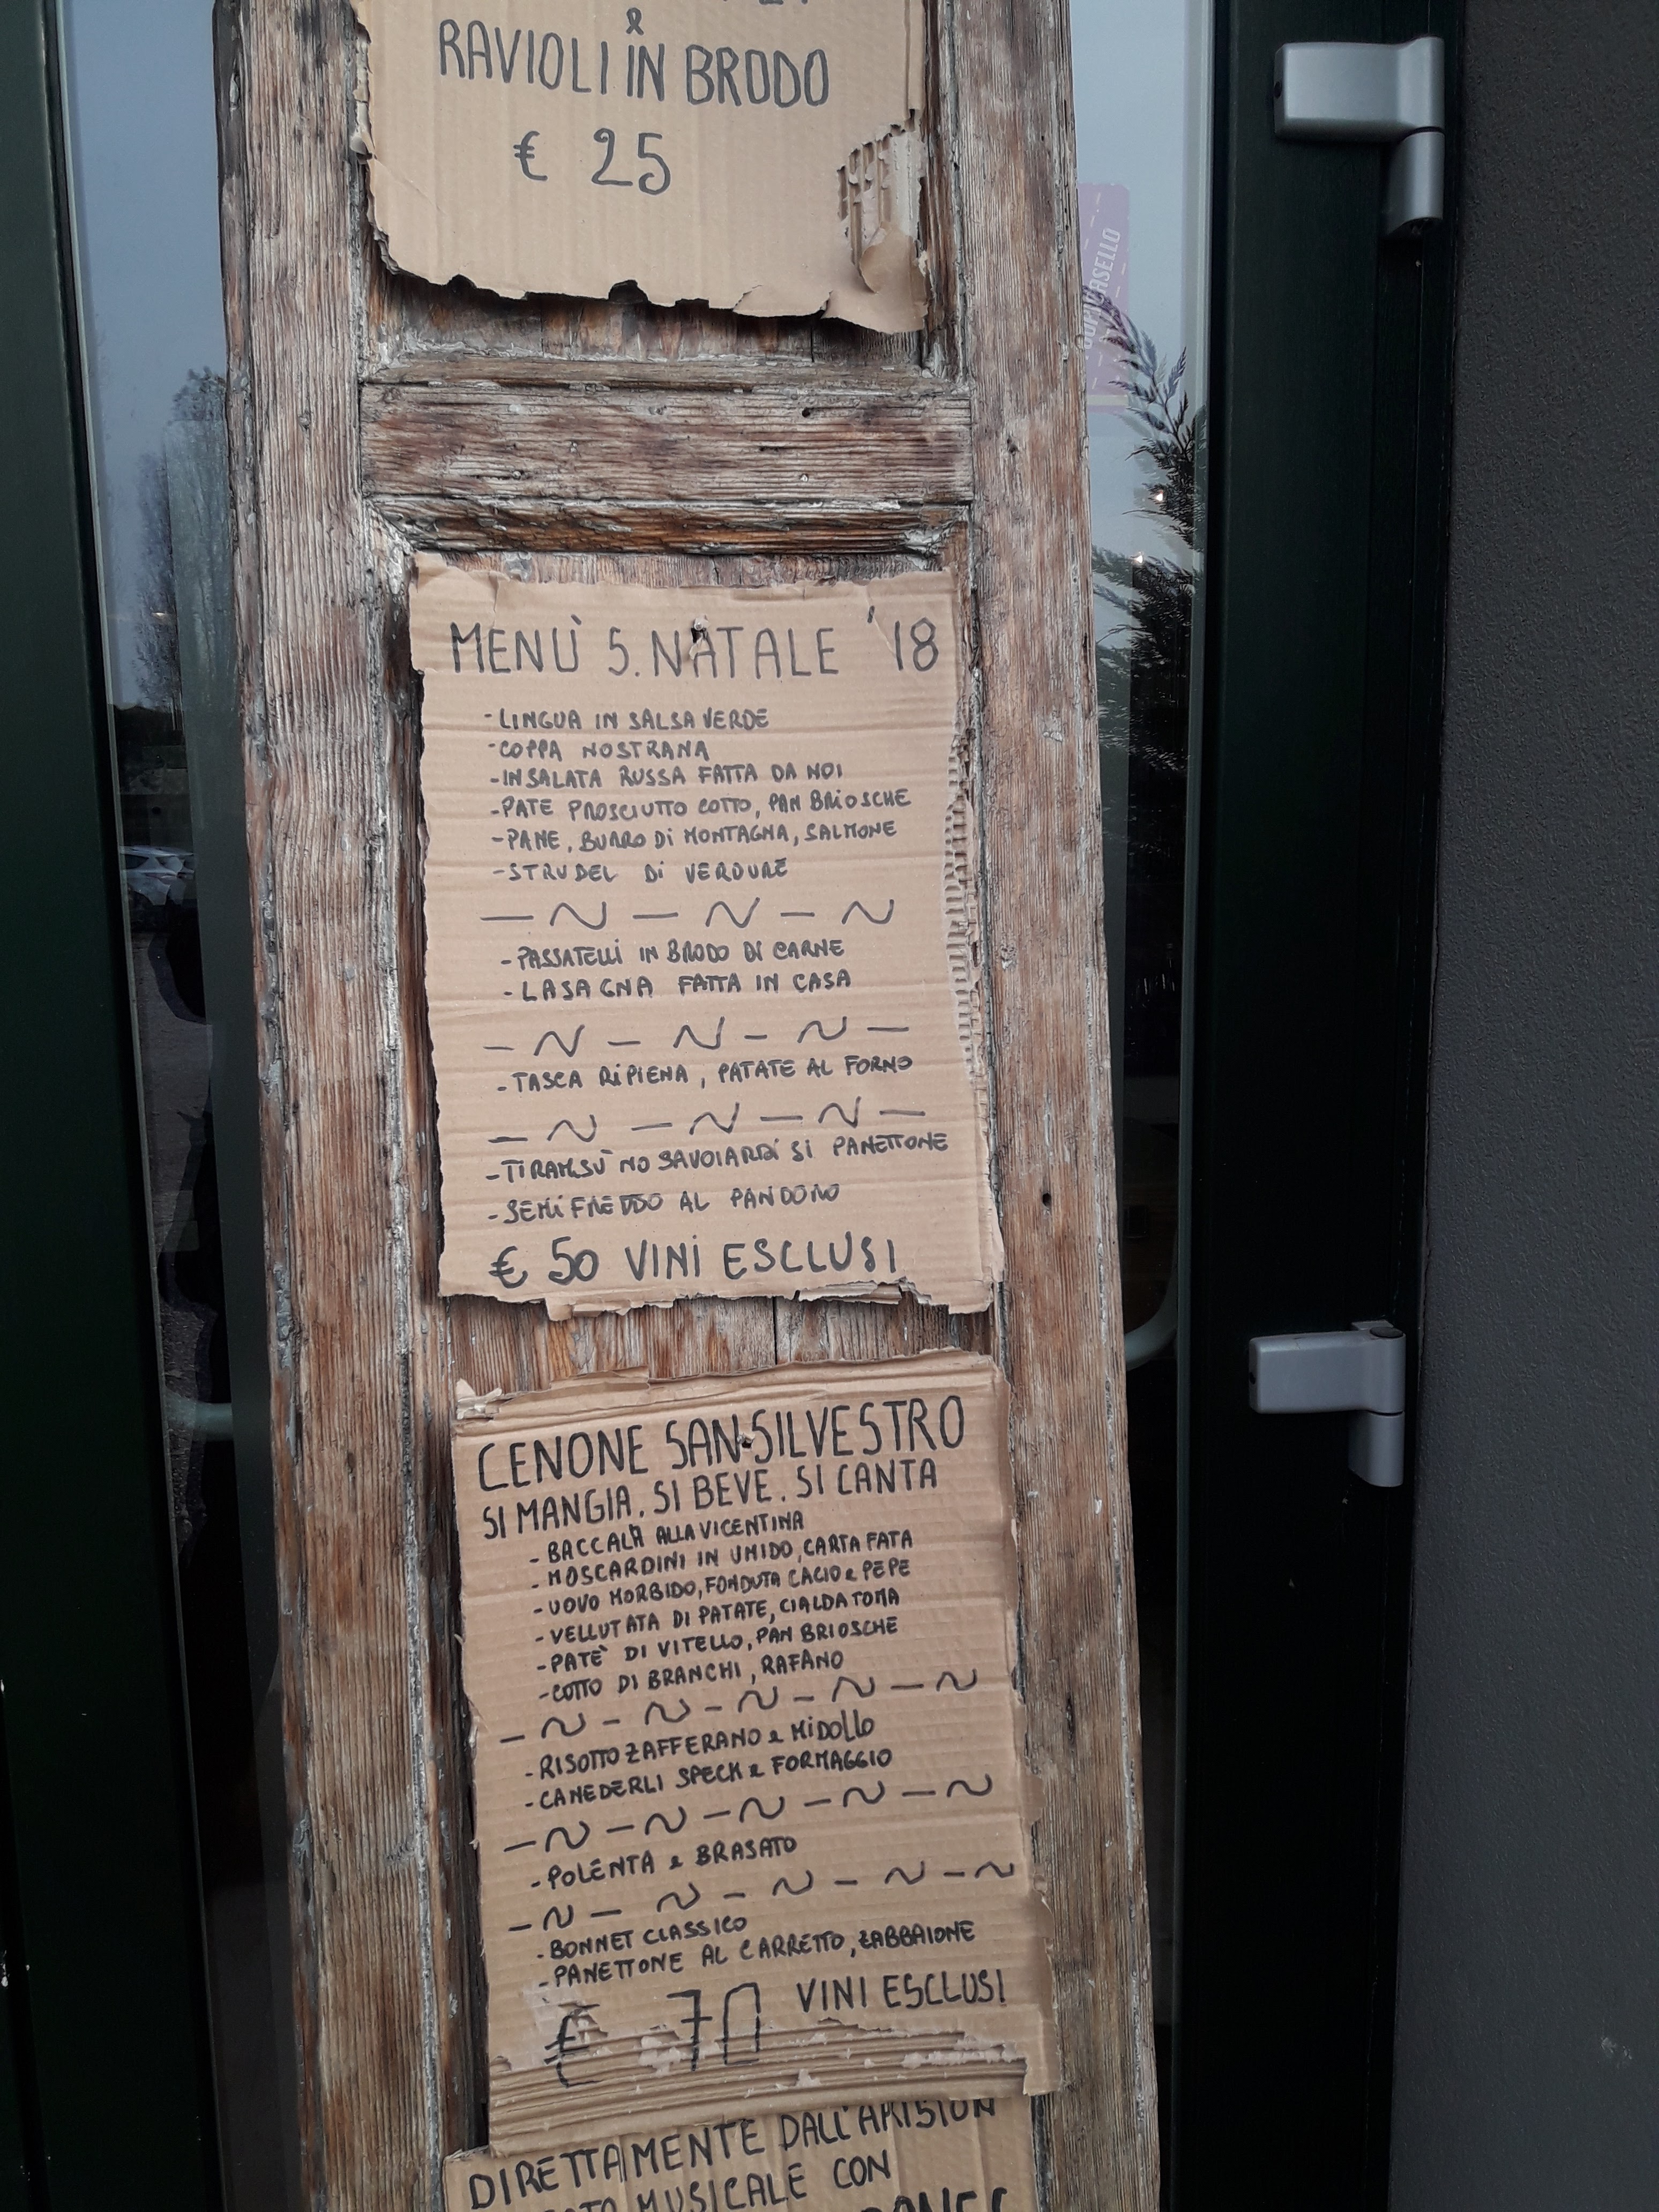 &
RAVIOLI IN BRODO
€ 25
MENÙ S. NATALE '18
- LINGUA IN SALSA VERDE
- COPPA NOSTRANA
- INSALATA RUSSA FATTA DA NOI
- PATE PROSCIUTTO COTTO, PAN BRIOSCHE
- PANE, BURRO DI MONTAGNA, SALMONE
- STRUDEL DI VERDURE
- PASSATELLI IN BRODO DI CARNE
- LASAGNA FATTA IN CASA
- TASCA RIPIENA, PATATE AL FORNO
- TIRAMISÙ NO SAVOIARDI SI PANETTONE
- SEMIFREDDO AL PANDORO
€ 50 VINI ESCLUSI
CENONE SAN SILVESTRO
SI MANGIA. SI BEVE. SI CANTA
- BACCALÀ ALLA VICENTINA
- MOSCARDINI IN UMIDO, CARTA FATA
- UOVO MORBIDO, FONDUTA CACIO e PEPE
- VELLUTATA DI PATATE, CIALDA TOMA
- PATÈ DI VITELLO, PAN BRIOSCHE
- COTTO DI BRANCHI, RAFANO
- RISOTTO ZAFFERANO e MIDOLLO
- CANEDERLI SPECK e FORMAGGIO
- POLENTA e BRASATO
- BONNET CLASSICO
- PANETTONE AL CARRETTO, ZABBAIONE
€ 70 VINI ESCLUSI
DIRETTAMENTE DALL'ARISTON
MUSICALE CON